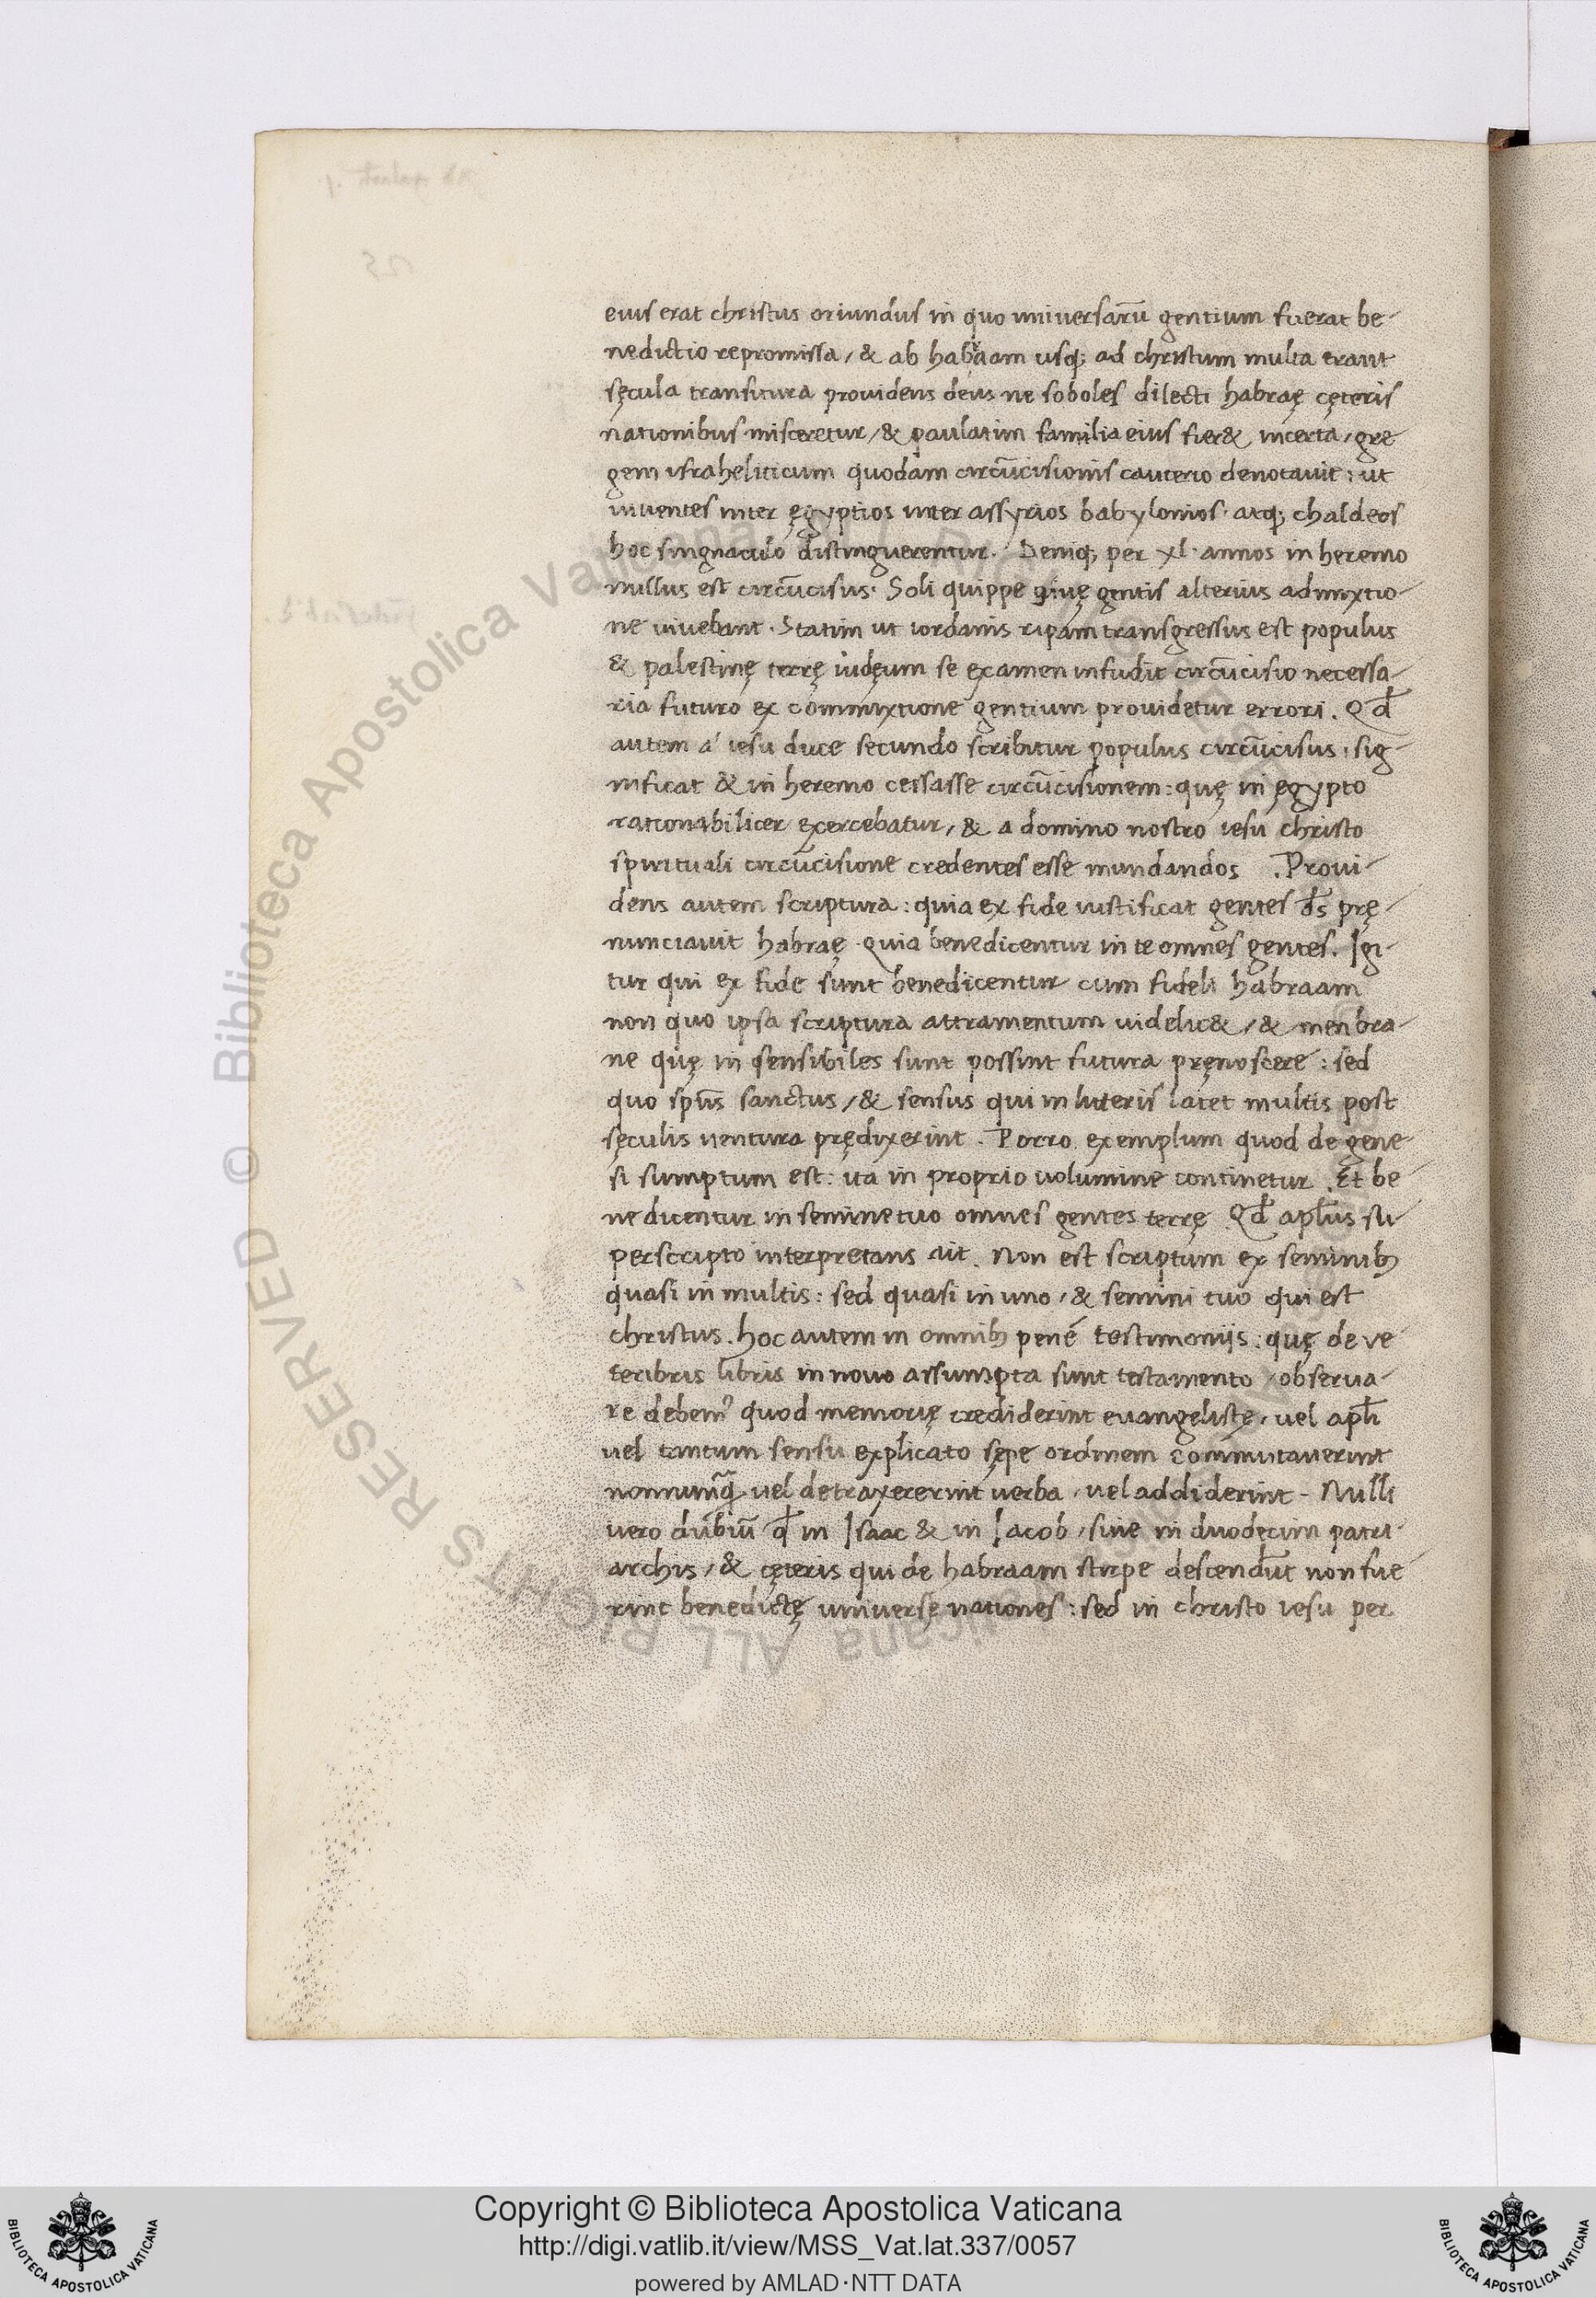 eius erat christus oriundus in quo universarū gentium fuerat be-
nedictio repromissa, & ab habraam usq; ad christum multa erant
sęcula transitura providens deus ne soboles dilecti habraę cęteris
nationibus misceretur, & paulatim familia eius fier& incerta, gre
gem israheliticum quodam circūcisionis cauterio denotavit: ut
viventes inter ęgyptios inter assyrios babylonios. atq; chaldeos
hoc singnaculo distinguerentur. Deniq; per xl. annos in heremo
nullus est circūcisus. Soli quippe sinę gentis alterius admixtio-
ne vivebant. Statim ut iordanis ripam transgressus est populus
& palestinę terrę iudęum se examen infudit circūcisio necessa-
ria futuro ex commixtione gentium providetur errori. Qđ
autem a iesu duce secundo scribitur populus circūcisus, sig-
nificat & in heremo cessasse circūcisionem: quę in ęgypto
rationabiliter exercebatur, & a domino nostro iesu christo
spirituali circūcisione credentes esse mundandos. Provi-
dens autem scriptura: quia ex fide iustificat gentes d̄s prę-
nunciavit habraę. quia benedicentur in te omnes gentes. Igi-
tur qui ex fide sunt benedicentur cum fideli habraam
non quo ipsa scriptura attramentum videlic&, & menbra-
ne quę in sensibiles sunt possint futura pręnoscere: sed
quo sp̄us sanctus, & sensus qui in litteris latet multis post
sęculis ventura prędixerint. Porro exemplum quod de gene-
si sumptum est: ita in proprio volumine continetur. Et be
nedicentur in semine tuo omnes gentes terrę Qđ apl̄us su
perscripto interpretans ait. Non est scriptum ex seminib;
quasi in multis: sed quasi in uno, & semini tuo qui est
christus. hoc autem in omnib; pené testimoniis: quę de ve
teribris libris in novo assumpta sunt testamento, observa-
re debem⁹ quod memorię crediderint evangelistę, vel apl̄i
vel tantum sensu explicato sępe ordinem commutaverint
nonnunq̄ vel detraxererint verba, vel addiderint. Nulli
vero dubiū qđ in Isaac & in Iacob, sive in duodecim patri-
archis, & cęteris qui de habraam stirpe descendūt non fue
rint benedictę universę nationes: sed in christo iesu per
Copyright © Biblioteca Apostolica Vaticana
http://digi.vatlib.it/view/MSS_Vat.lat.337/0057
powered by AMLAD·NTT DATA
BIBLIOTECA APOSTOLICA VATICANA
BIBLIOTECA APOSTOLICA VATICANA
© Biblioteca Apostolica Vaticana ALL RIGHTS RESERVED